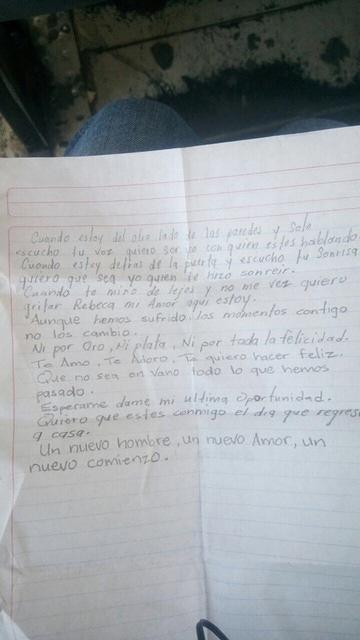 Cuando estoy del otro lado de las paredes y Solo
escucho tu voz quiero ser yo con quien estes hablando.
Cuando estoy detras de la puerta y escucho tu Sonrisa
quiero que sea yo quien te hizo sonreir.
Cuando te miro de lejos y no me vez quiero
gritar Rebeca mi Amor aqui estoy.
Aunque hemos sufrido los momentos contigo
no los cambio.
Ni por Oro, Ni plata, Ni por toda la felicidad.
Te Amo, Te Adoro, Te quiero hacer feliz.
Que no sea en vano todo lo que hemos
pasado.
Esperame dame mi ultima oportunidad.
Quiero que estes conmigo el dia que regrese
a casa.
Un nuevo hombre, un nuevo Amor, un
nuevo comienzo.